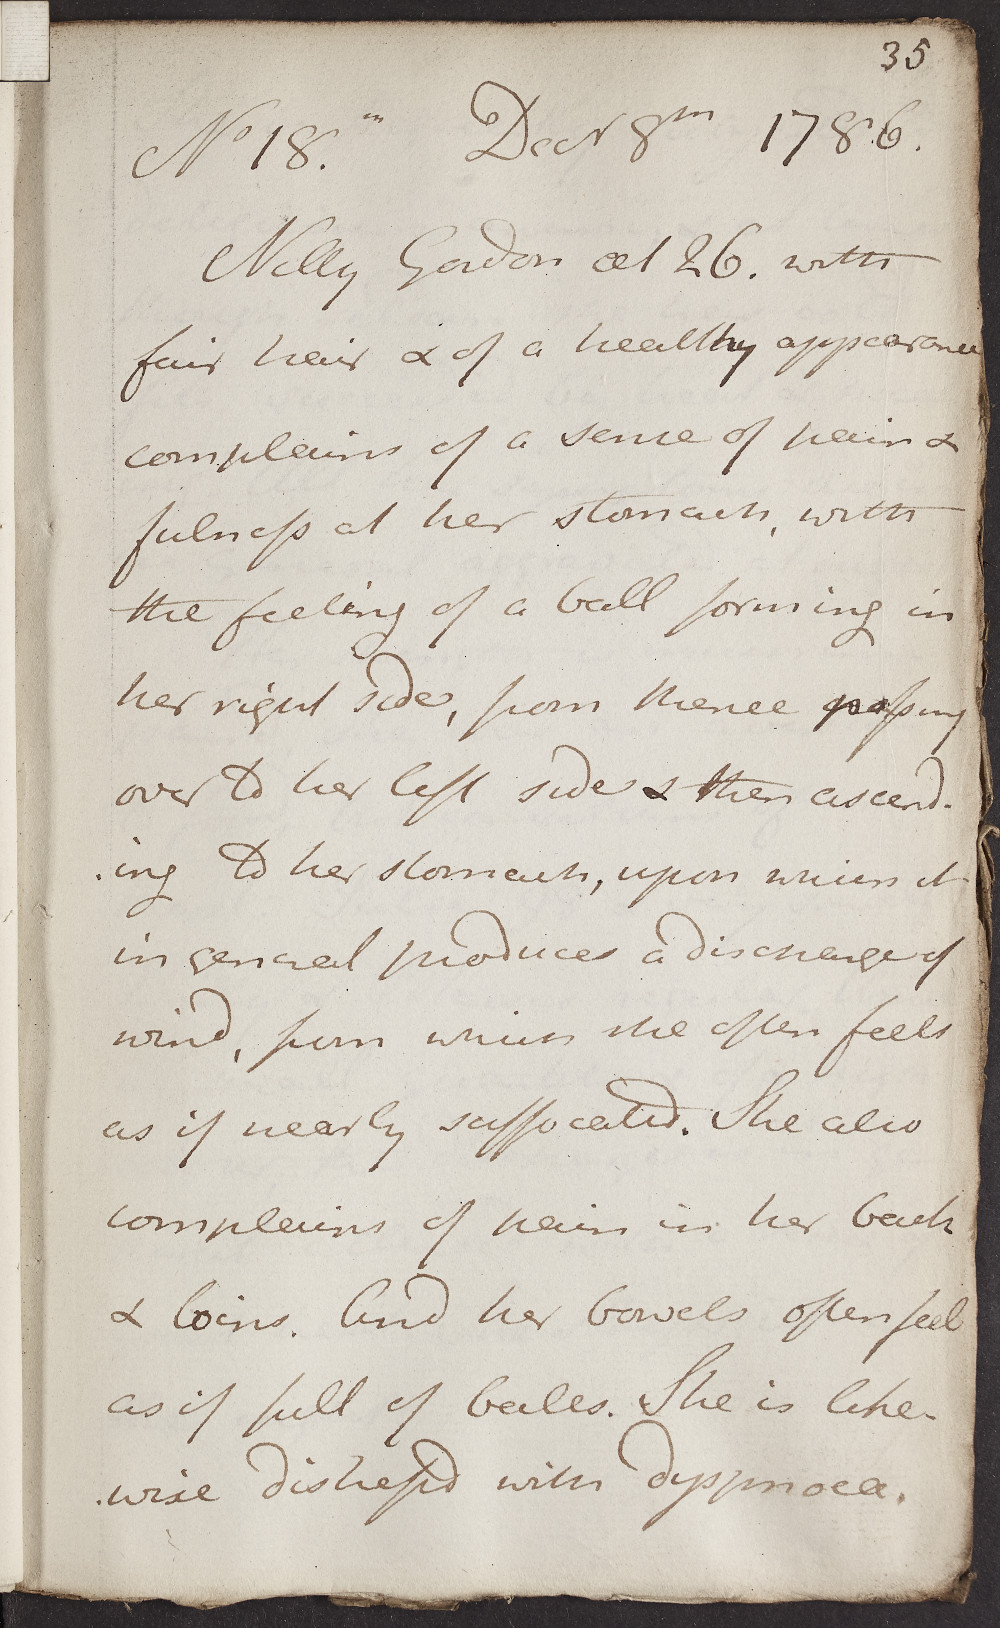 35
No 18.th Decr 8th 1786.
Nelly Gordon æt 26. with
fair hair & of a healthy appearance
complains of a sense of pain &
fulness at her stomach, with
the feeling of a ball forming in
her right side, from thence passing
over to her left side & then ascend-
-ing to her stomach, upon which it
in general produces a discharge of
wind, from which she often feels
as if nearly suffocated. She also
complains of pain in her back
& loins. And her bowels often feel
as if full of balls. She is like-
-wise distressd with dyspnoea.